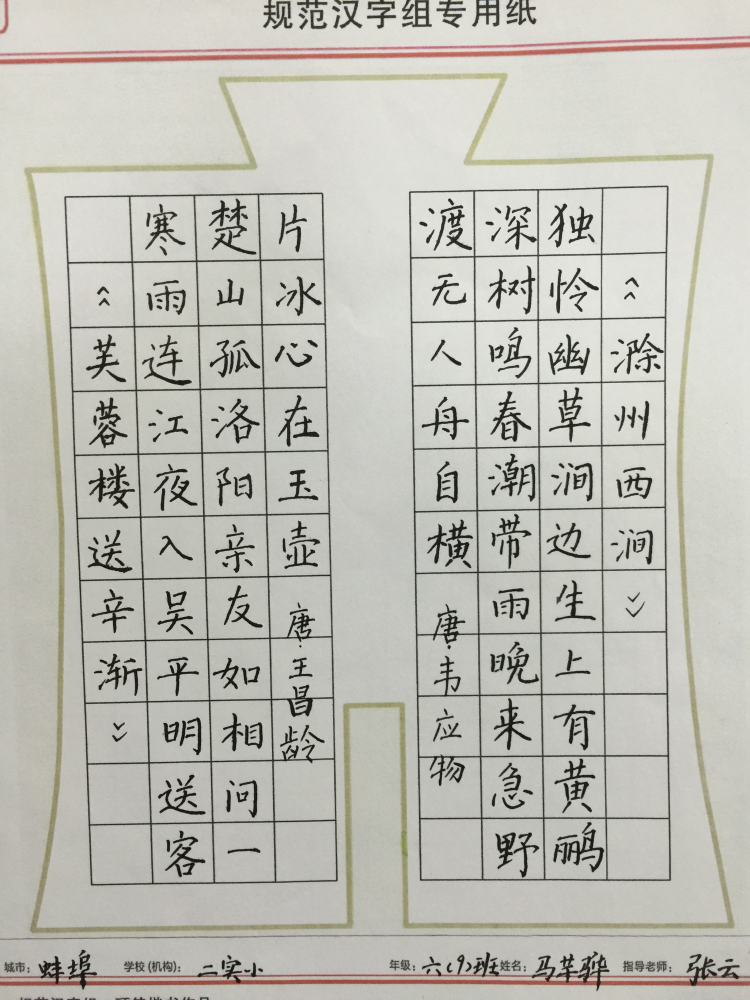 规范汉字组专用纸
《滁州西涧》
独怜幽草涧边生上有黄鹂
深树鸣春潮带雨晚来急野
渡无人舟自横
唐·韦应物
《芙蓉楼送辛渐》
寒雨连江夜入吴平明送客
楚山孤洛阳亲友如相问一
片冰心在玉壶
唐·王昌龄
城市：蚌埠 学校(机构)：二实小 年级：六(9)班 姓名：马芊骅 指导老师：张云